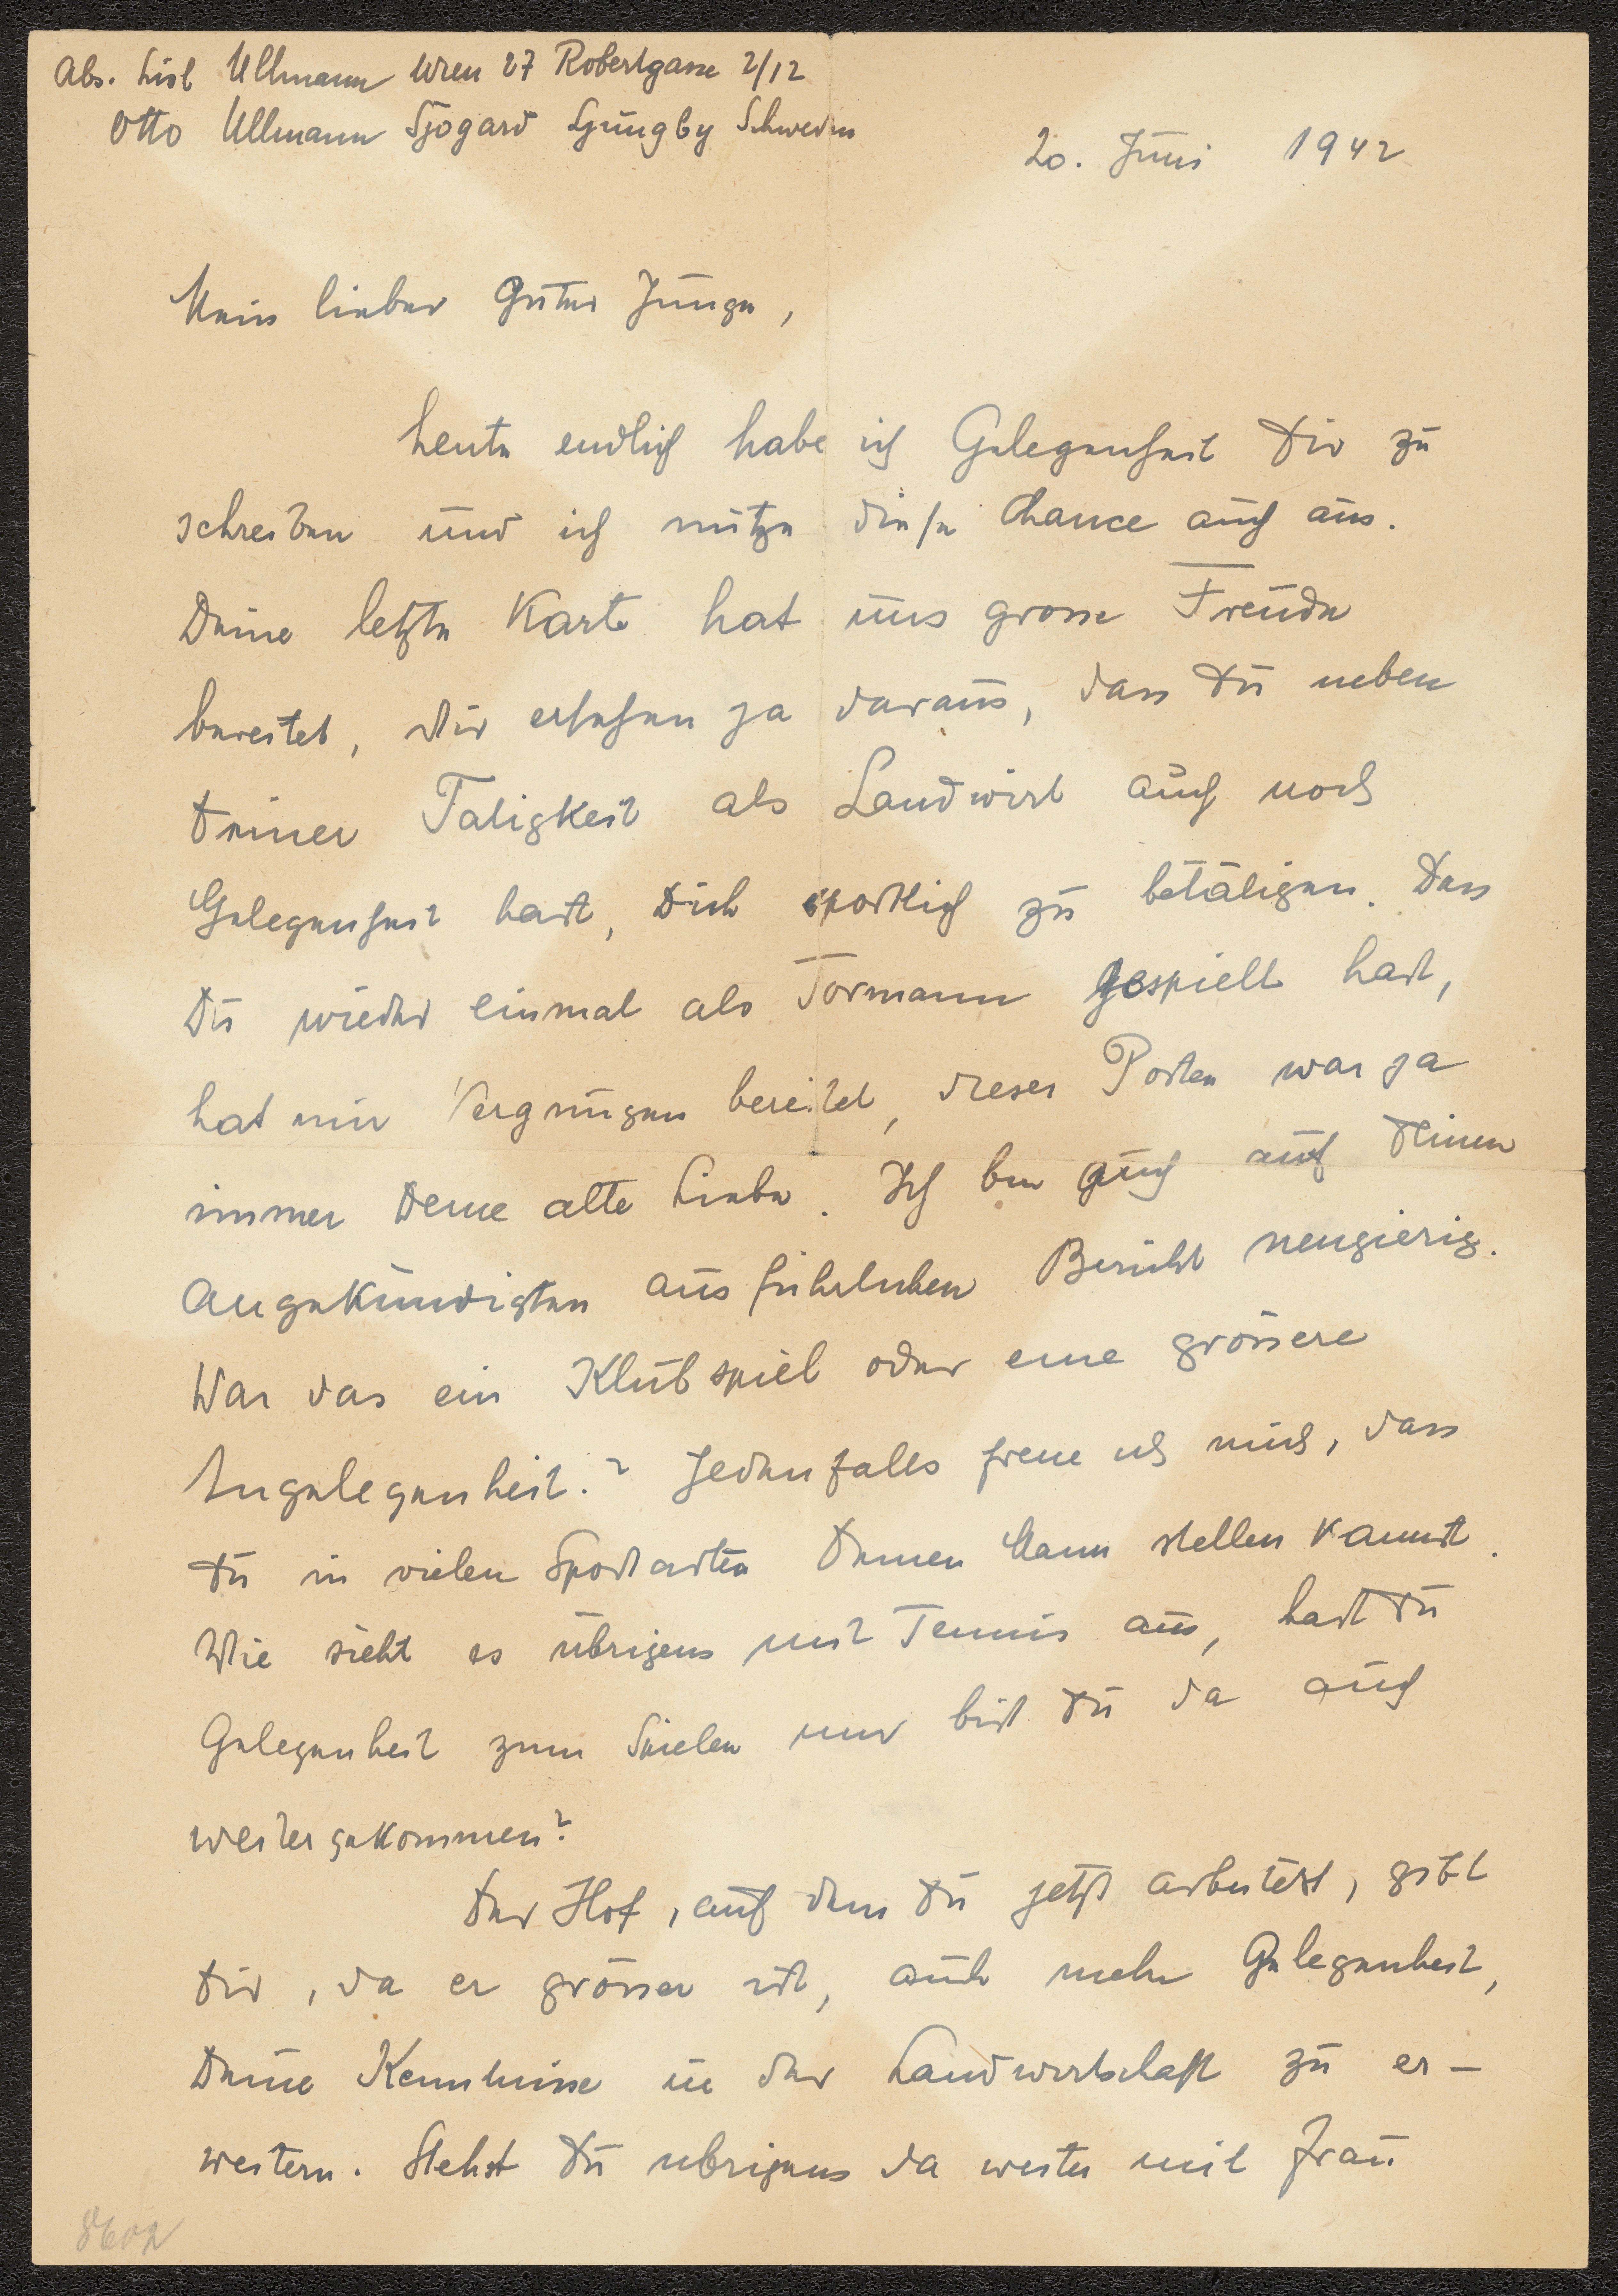 Abs. Lisl Ullmann Wien 27 Robertgasse 2/12
Otto Ullmann Sjögard Ljungby Schweden
20. Juni 1942
Mein lieber guter Junge,
heute endlich habe ich Gelegenheit Dir zu
schreiben und ich nütze diese Chance auch aus.
Deine letzte Karte hat uns grosse Freude
bereitet, wir ersehen ja daraus, dass Du neben
Deiner Tätigkeit als Landwirt auch noch
Gelegenheit hast, Dich sportlich zu betätigen. Dass
Du wieder einmal als Tormann gespielt hast,
hat mir Vergnügen bereitet, dieser Posten war ja
immer Deine alte Liebe. Ich bin auch auf Deinen
angekündigten ausführlichen Bericht neugierig.
War das ein Klubspiel oder eine grössere
Angelegenheit? Jedenfalls freue ich mich, dass
Du in vielen Sportarten Deinen Mann stellen kannst.
Wie sieht es übrigens mit Tennis aus, hast Du
Gelegenheit zum Spielen und bist Du da auch
weitergekommen?
Der Hof, auf dem Du jetzt arbeitest, gibt
Dir, da er grösser ist, auch mehr Gelegenheit,
Deine Kenntnisse in der Landwirtschaft zu er-
weitern. Stehst Du übrigens da weiter mit Frau
8602